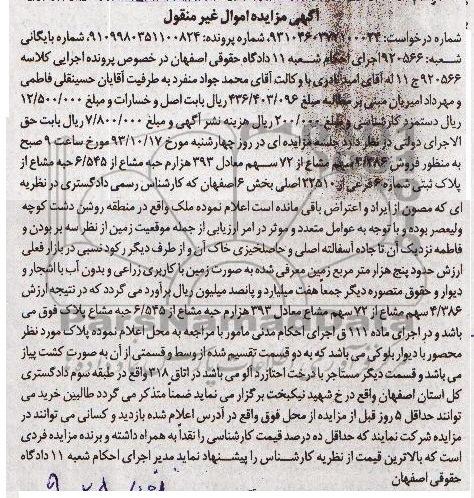 آگهی مزایده اموال غیر منقول
شماره درخواست: ۹۳۱۰۳۶۰۳۷۲۱۰۰۰۳۴، شماره پرونده: ۹۱۰۹۹۸۰۳۵۱۱۰۰۸۲۴، شماره بایگانی
شعبه: ۹۲۰۵۶۶ اجرای احکام شعبه ۱۱ دادگاه حقوقی اصفهان در خصوص پرونده اجرایی کلاسه
۹۲۰۵۶۶ ج ۱۱ له آقای اسید نادری با وکالت آقای محمد جواد منفرد به طرفیت آقایان حسینقلی فاطمی
و مهرداد امیریان مبنی بر مطالبه مبلغ ۴۳۶/۴۰۳/۰۹۶ ریال بابت اصل و خسارات و مبلغ ۱۲/۵۰۰/۰۰۰
ریال دستمزد کارشناسی و مبلغ ۲۰۰/۰۰۰ ریال هزینه نشر آگهی و مبلغ ۷/۸۰۰/۰۰۰ ریال بابت حق
الاجرای دولتی در نظر دارد جلسه مزایده ای در روز چهارشنبه مورخ ۹۳/۱۰/۱۷ مورخ ساعت ۹ صبح
به منظور فروش ۴/۳۸۶ سهم مشاع از ۷۲ سهم معادل ۳۹۳ هزارم حبه مشاع از ۶/۵۴۵ حبه مشاع از
پلاک ثبتی شماره ۶ فرعی از ۲۲۵۱۰ اصلی بخش ۶ اصفهان که کارشناس رسمی دادگستری در نظریه
ای که مصون از ایراد و اعتراض باقی مانده است اعلام نموده ملک واقع در منطقه روشن دشت کوچه
ولیعصر بوده و با توجه به عوامل متعدد و موثر در امر ارزیابی از جمله موقعیت زمین از نظر سه بر بودن و
فاصله نزدیک آن تا جاده آسفالته اصلی و حاصلخیزی خاک آن و از طرف دیگر رکود نسبی در بازار فعلی
ارزش حدود پنج هزار متر مربع زمین معرفی شده به صورت زمین با کاربری زراعی و بدون آب با اشجار و
دیوار و حقوق متصوره دیگر جمعا هفت میلیارد و پانصد میلیون ریال برآورد می گردد که در نتیجه ارزش
۴/۳۸۶ سهم مشاع از ۷۲ سهم مشاع معادل ۳۹۳ هزارم حبه مشاع از ۶/۵۴۵ حبه مشاع پلاک فوق می
باشد و در اجرای ماده ۱۱۱ ق اجرای احکام مدنی مامور با مراجعه به محل اعلام نموده پلاک مورد نظر
محصور با دیوار بلوکی می باشد که به دو قسمت تقسیم شده از وسط و قسمتی از آن به صورت کشت پیاز
می باشد و قسمت دیگر مستأجر با درخت احتازرد آلو می باشد در اتاق ۳۱۸ واقع در طبقه سوم دادگستری
کل استان اصفهان واقع در خ شهید نیکبخت برگزار می نماید ضمنا متذکر می گردد طالبین خرید می
توانند حداقل ۵ روز قبل از مزایده از محل فوق واقع در آدرس اعلام شده بازدید و کسانی می توانند در
مزایده شرکت نمایند که حداقل ده درصد قیمت کارشناسی را نقداً به همراه داشته و برنده مزایده فردی
است که بالاترین قیمت از نظریه کارشناس را پیشنهاد نماید مدیر اجرای احکام شعبه ۱۱ دادگاه
حقوقی اصفهان